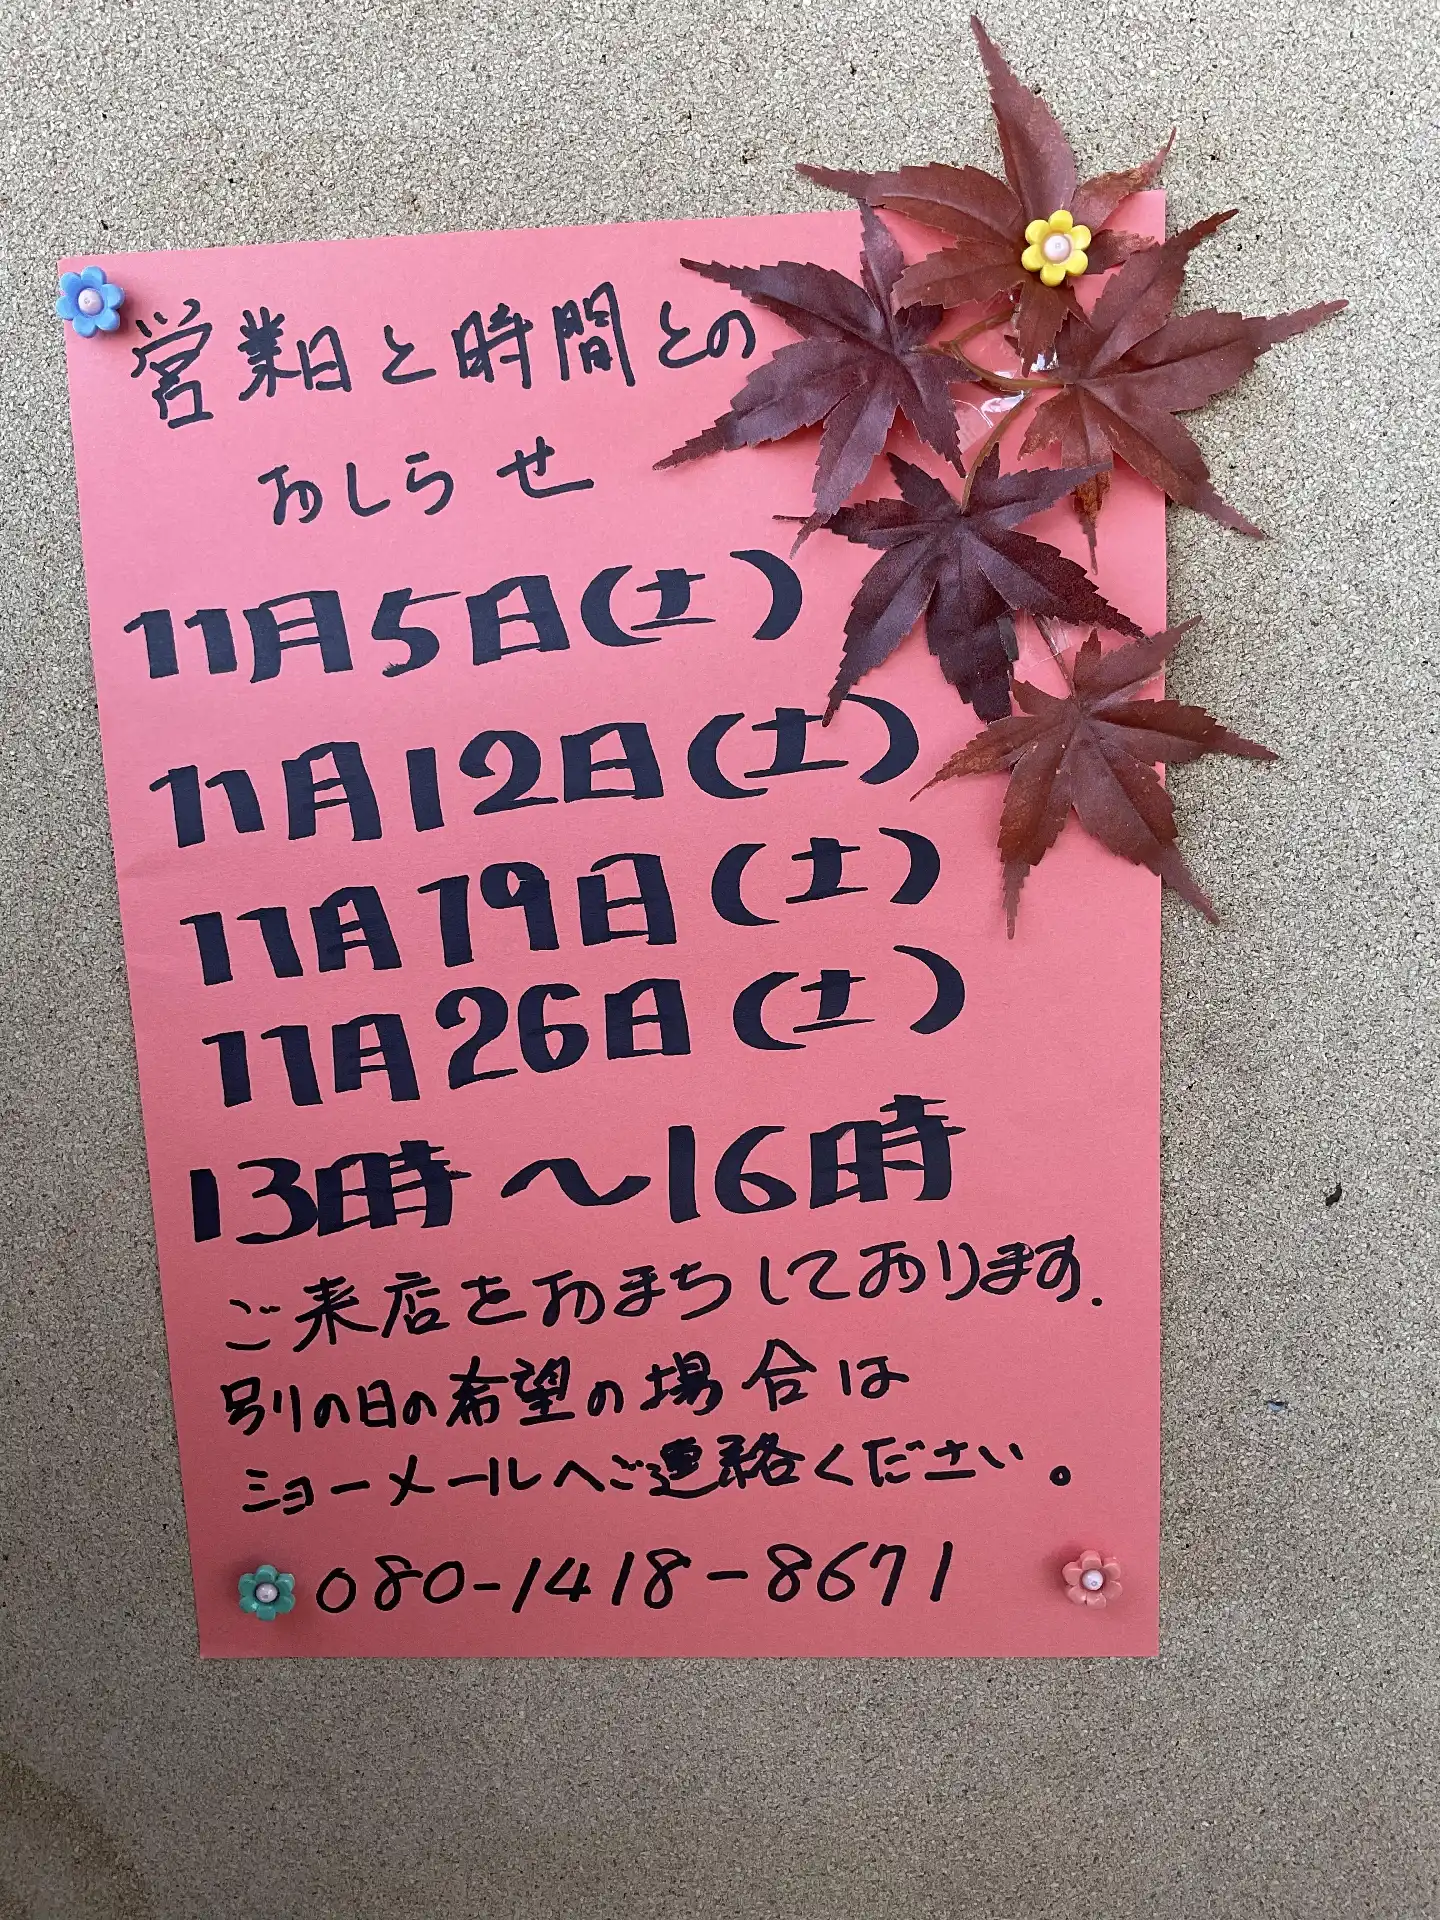 営業日と時間との
おしらせ
11月5日(土)
11月12日(土)
11月19日(土)
11月26日(土)
13時〜16時
ご来店をおまちしております.
別の日の希望の場合は
ショーメールへご連絡ください。
080-1418-8671